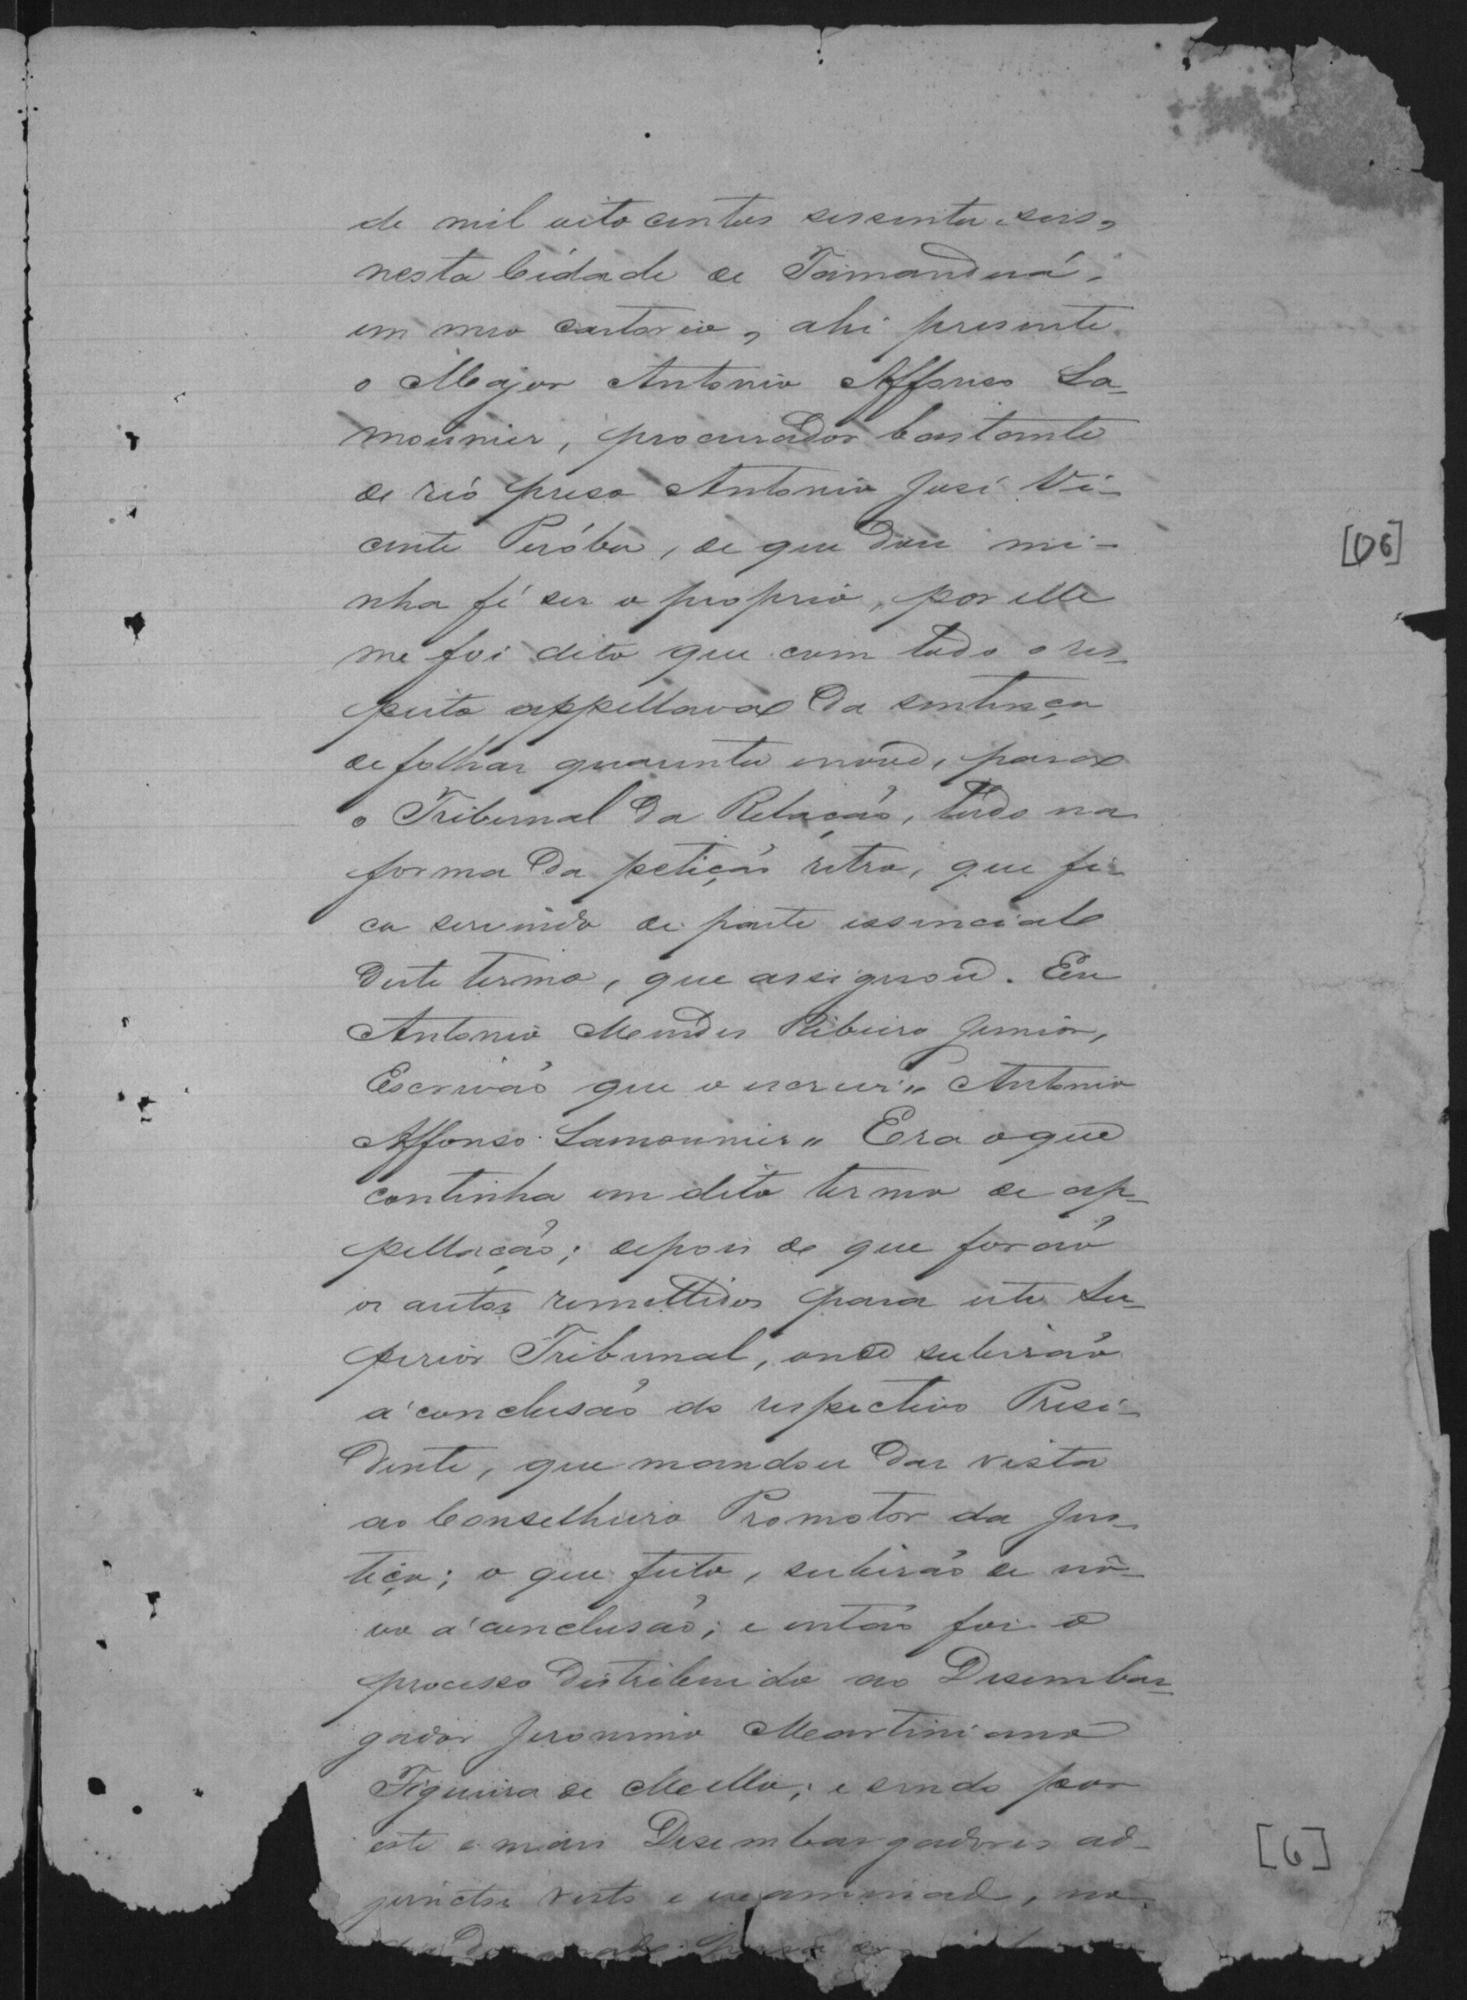 de mil oito centos sessenta e seis,
nesta Cidade de Tamanduá,
em meo cartorio, ahi presente
o Major Antonio Affonso La-
mounier, procurador bastante
de réo preso Antonio José Vi-
cente Peróba, de que dou mi-
nha fé ser o proprio, por elle
me foi dito que com todo o res-
peito appellava da sentença
de folhas quarenta e nove, para
o Tribunal da Relação, tudo na
forma da petição retro, que fi-
ca servindo de parte essencial
deste termo, que assignou. Eu
Antonio Mendes Ribeiro Junior,
Escrivão que o escrevi„ Antonio
Affonso Lamounier„ Era o que
continha em dito termo de ap-
pellação; depois de que forão
os autos remettidos para este Su-
perior Tribunal, onde subirão
á conclusão do respectivo Presi-
dente, que mandou dar vista
ao Conselheiro Promotor da Jus-
tiça; o que feito, subirão de nó-
vo á conclusão; e então foi o
processo destribuido ao Desembar-
gador Jeronimo Martiniano
Figueira de Mello; e sendo por
este e mais Desembargadores ad-
junctos visto e examinado, no
[06]
[6]